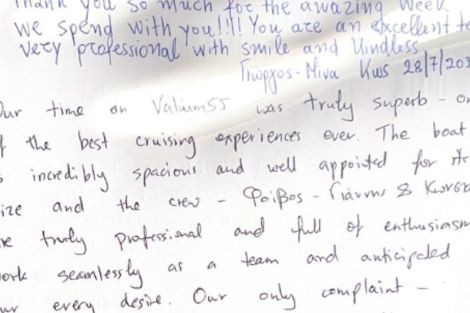 Thank you so much for the amazing week
we spend with you!!!! You are an excellent te
very professional with smile and kindness
Γιώργος-Νίνα Kws 28/7/20
Our time on Valium55 was truly superb - on
f the best cruising experiences ever. The boat
s incredibly spacious and well appointed for its
ize and the crew - Φοίβος - Γιάννης & Κων
re truly professional and full of enthusiasm
ork seamlessly as a team and anticipated
ur every desire. Our only complaint -